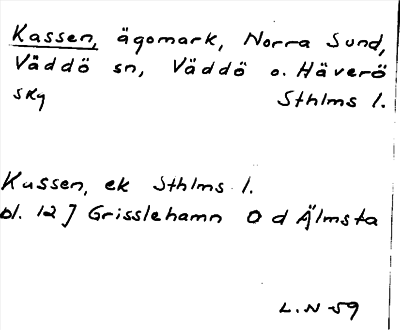 Kassen, ägomark, Norra Sund,
Väddö sn, Väddö o. Häverö
skg Sthlms l.
Kassen, ek Sthlms l.
bl. 12 J Grisslehamn O d Älmsta
L.N-59